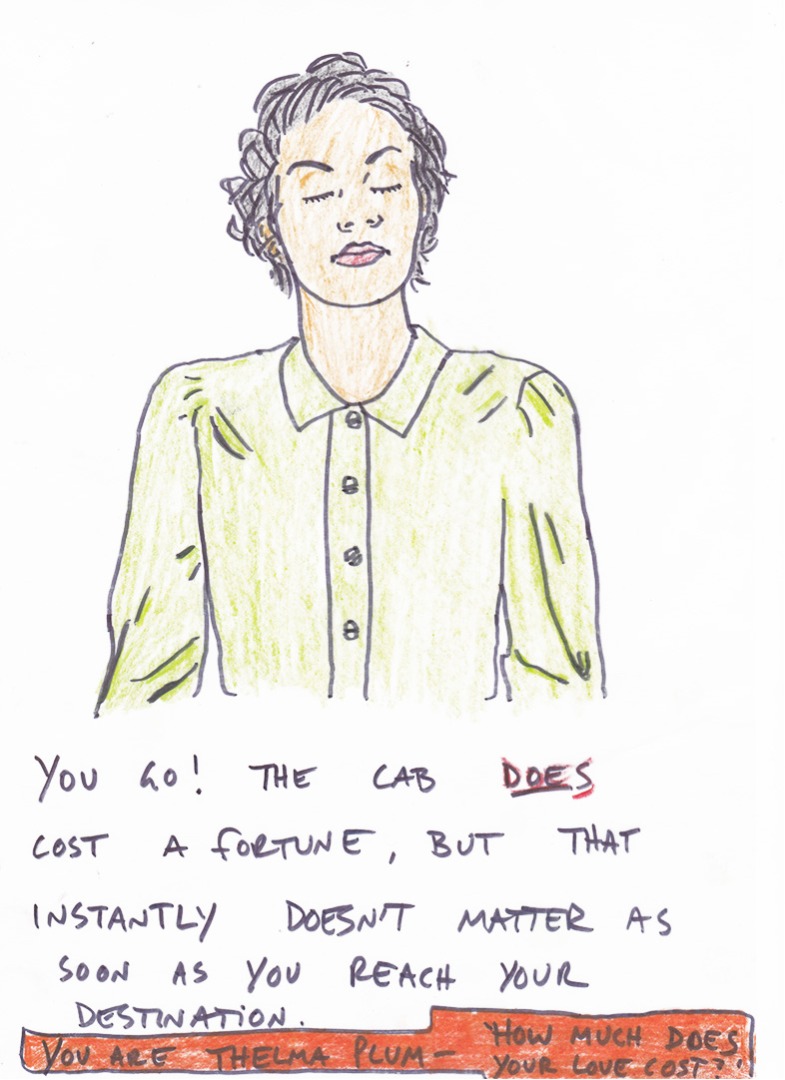 YOU GO! THE CAB DOES
COST A FORTUNE, BUT THAT
INSTANTLY DOESN'T MATTER AS
SOON AS YOU REACH YOUR
DESTINATION.
YOU ARE THELMA PLUM — 'HOW MUCH DOES
YOUR LOVE COST?'